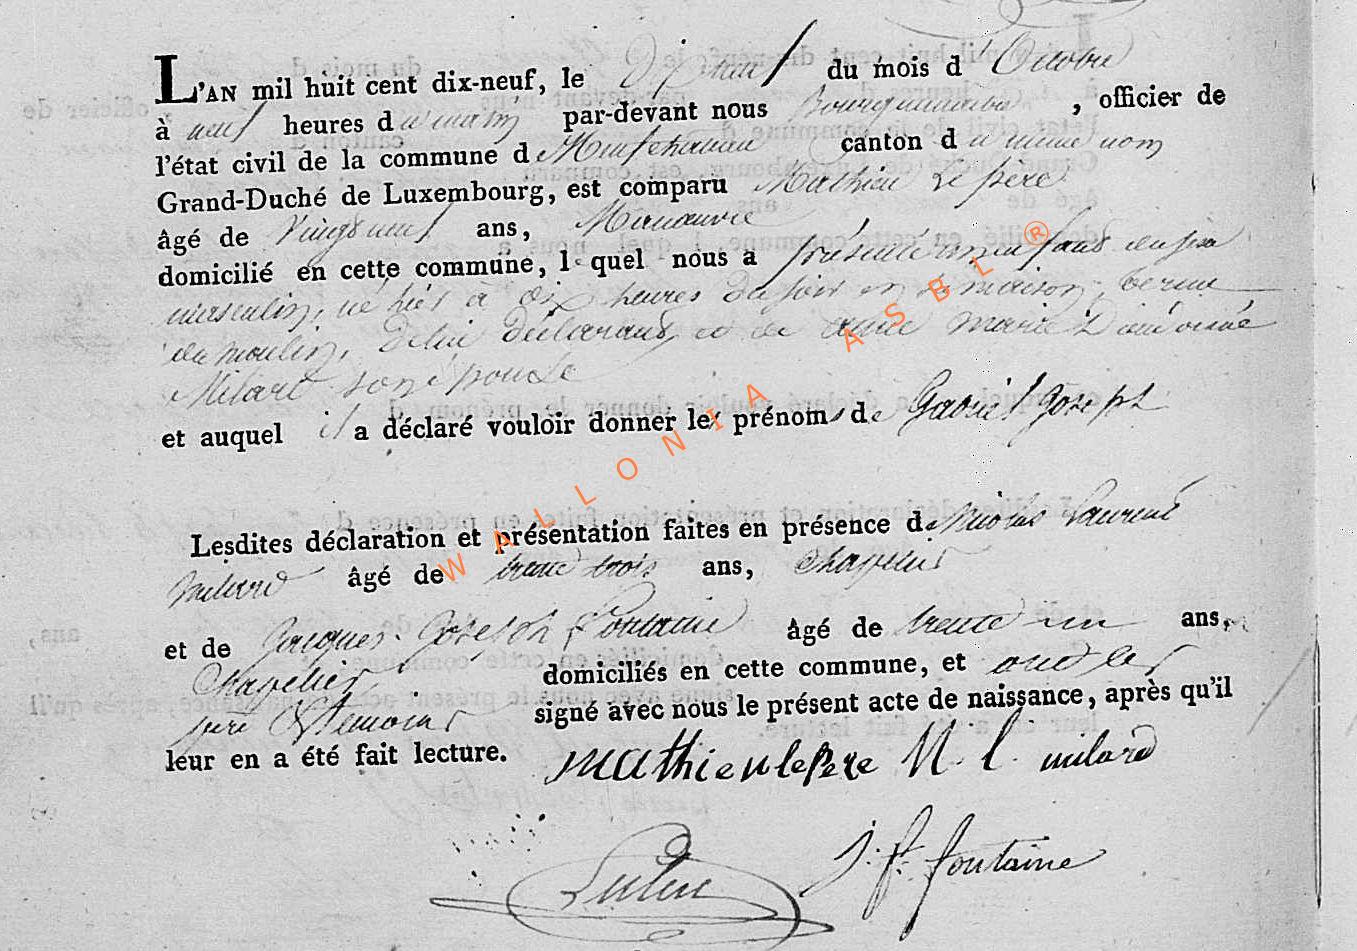 L'AN mil huit cent dix-neuf, le dix neuf du mois d'Octobre
à neuf heures du matin par-devant nous Bourguemaitre, officier de
l'état civil de la commune de Neufchateau canton du même nom
Grand-Duché de Luxembourg, est comparu Mathieu Le père
âgé de Vingt neuf ans, Manœuvre
domicilié en cette commune, lequel nous a présenté un enfant du sexe
masculin, né hier à dix heures du soir en sa maison,
du moulin, de lui déclarant et de Marie
Milard son épouse
et auquel il a déclaré vouloir donner les prénoms de Gabriel Joseph
Lesdites déclaration et présentation faites en présence de Nicolas Laurent
milard âgé de trente trois ans, Chapelier
et de Jacques Joseph Fontaine âgé de trente un ans,
Chapelier domiciliés en cette commune, et ont les
père & temoins signé avec nous le présent acte de naissance, après qu'il
leur en a été fait lecture.
mathieu lepere N. l. milard
J. ft. fontaine
WALLONIA ASBL®